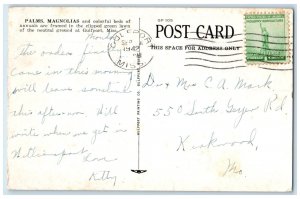 PALMS, MAGNOLIAS and colorful beds of
annuals are framed in the clipped green lawn
of the neutral ground at Gulfport, Miss.
POST CARD
THIS SPACE FOR ADDRESS ONLY
GULFPORT
SEP
MISS
the
Came in this morning
will leave sometime
this afternoon. Will
write when we get in
Love
Kitty
Dr & Mrs C. A. Mack
550 South Geyer Rd
Kirkwood,
Mo.